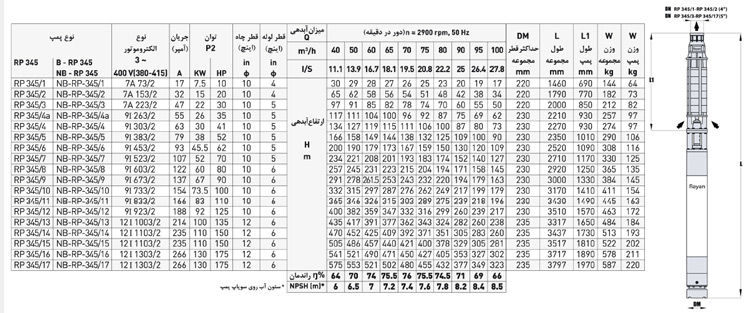 نوع پمپ	نوع الکتروموتور	جریان (آمپر)	توان P2	قطر چاه (اینچ)	قطر لوله (اینچ)	میزان آبدهی Q	n = 2900 rpm, 50 Hz (دور در دقیقه)	DM حداکثر قطر مجموعه mm	L طول مجموعه mm	L1 طول پمپ mm	W وزن مجموعه kg	W وزن پمپ kg
RP 345	B - RP 345 NB - RP 345	3 ~ 400 V(380-415)	A	KW	HP	in ϕ	in ϕ
m³/h	40	50	60	65	70	75	80	90	95	100
I/S	11.1	13.9	16.7	18.1	19.5	20.8	22.2	25	26.4	27.8
ارتفاع آبدهی H m
RP 345/1	NB-RP-345/1	7A 73/2	17	7.5	10	10	4	30	29	28	27	26	25	23	20	19	17	220	1460	690	144	64
RP 345/2	NB-RP-345/2	7A 153/2	32	15	20	10	4	65	62	58	56	54	51	48	42	38	34	220	1790	770	182	73
RP 345/3	NB-RP-345/3	7A 223/2	47	22	30	10	5	97	91	85	82	78	74	70	60	55	50	220	2000	850	212	82
RP 345/4a	NB-RP-345/4a	9I 263/2	55	26	35	10	5	117	111	104	100	96	92	87	75	69	62	220	2210	930	257	97
RP 345/4	NB-RP-345/4	9I 303/2	63	30	41	10	5	134	127	119	115	111	106	100	87	80	73	220	2270	930	274	97
RP 345/5	NB-RP-345/5	9I 383/2	79	38	52	10	5	166	158	149	144	138	132	125	109	100	90	230	2350	1010	290	106
RP 345/6	NB-RP-345/6	9I 453/2	93	45.5	62	10	5	200	190	179	173	167	160	151	132	121	109	230	2520	1090	308	116
RP 345/7	NB-RP-345/7	9I 523/2	107	52	70	10	5	234	221	208	201	193	183	174	152	140	127	230	2710	1170	330	125
RP 345/8	NB-RP-345/8	9I 603/2	122	60	80	10	6	257	245	231	223	215	204	194	171	158	145	230	2920	1250	365	135
RP 345/9	NB-RP-345/9	9I 673/2	137	67	90	10	6	291	278	261.5	253	243	232	220	194	179	163	230	3000	1330	384	145
RP 345/10	NB-RP-345/10	9I 733/2	154	73.5	100	10	6	332	315	297	287	276	262	249	217	199	179	230	3170	1410	411	154
RP 345/11	NB-RP-345/11	9I 833/2	166	83	110	10	6	365	346	326	315	303	289	275	239	218	196	230	3430	1490	445	163
RP 345/12	NB-RP-345/12	9I 923/2	188	92	125	10	6	400	382	359	347	332	316	299	260	239	217	230	3510	1570	463	172
RP 345/13	NB-RP-345/13	12I 1003/2	214	100	135	12	6	435	417	391	377	362	343	324	282	260	238	235	3317	1650	484	184
RP 345/14	NB-RP-345/14	12I 1103/2	235	110	150	12	6	470	452	425	409	392	371	351	305	283	260	235	3437	1730	513	193
RP 345/15	NB-RP-345/15	12I 1103/2	235	110	150	12	6	505	486	457	440	421	400	378	329	305	281	235	3517	1810	522	202
RP 345/16	NB-RP-345/16	12I 1303/2	266	130	175	12	6	541	521	490	471	450	427	405	353	327	302	235	3717	1890	578	211
RP 345/17	NB-RP-345/17	12I 1303/2	266	130	175	12	6	575	553	521	502	480	455	432	377	349	323	235	3797	1970	587	220
راندمان η%	64	70	74	75.5	76	75.5	74.5	71	69	66
* ستون آب روی سوپاپ پمپ	NPSH (m)*	6	6.5	7	7.2	7.4	7.6	7.8	8.2	8.4	8.5
DN RP 345/1-RP 345/2 (4")
DN RP 345/3-RP 345/17(5")
L1
L
Rayan
DM